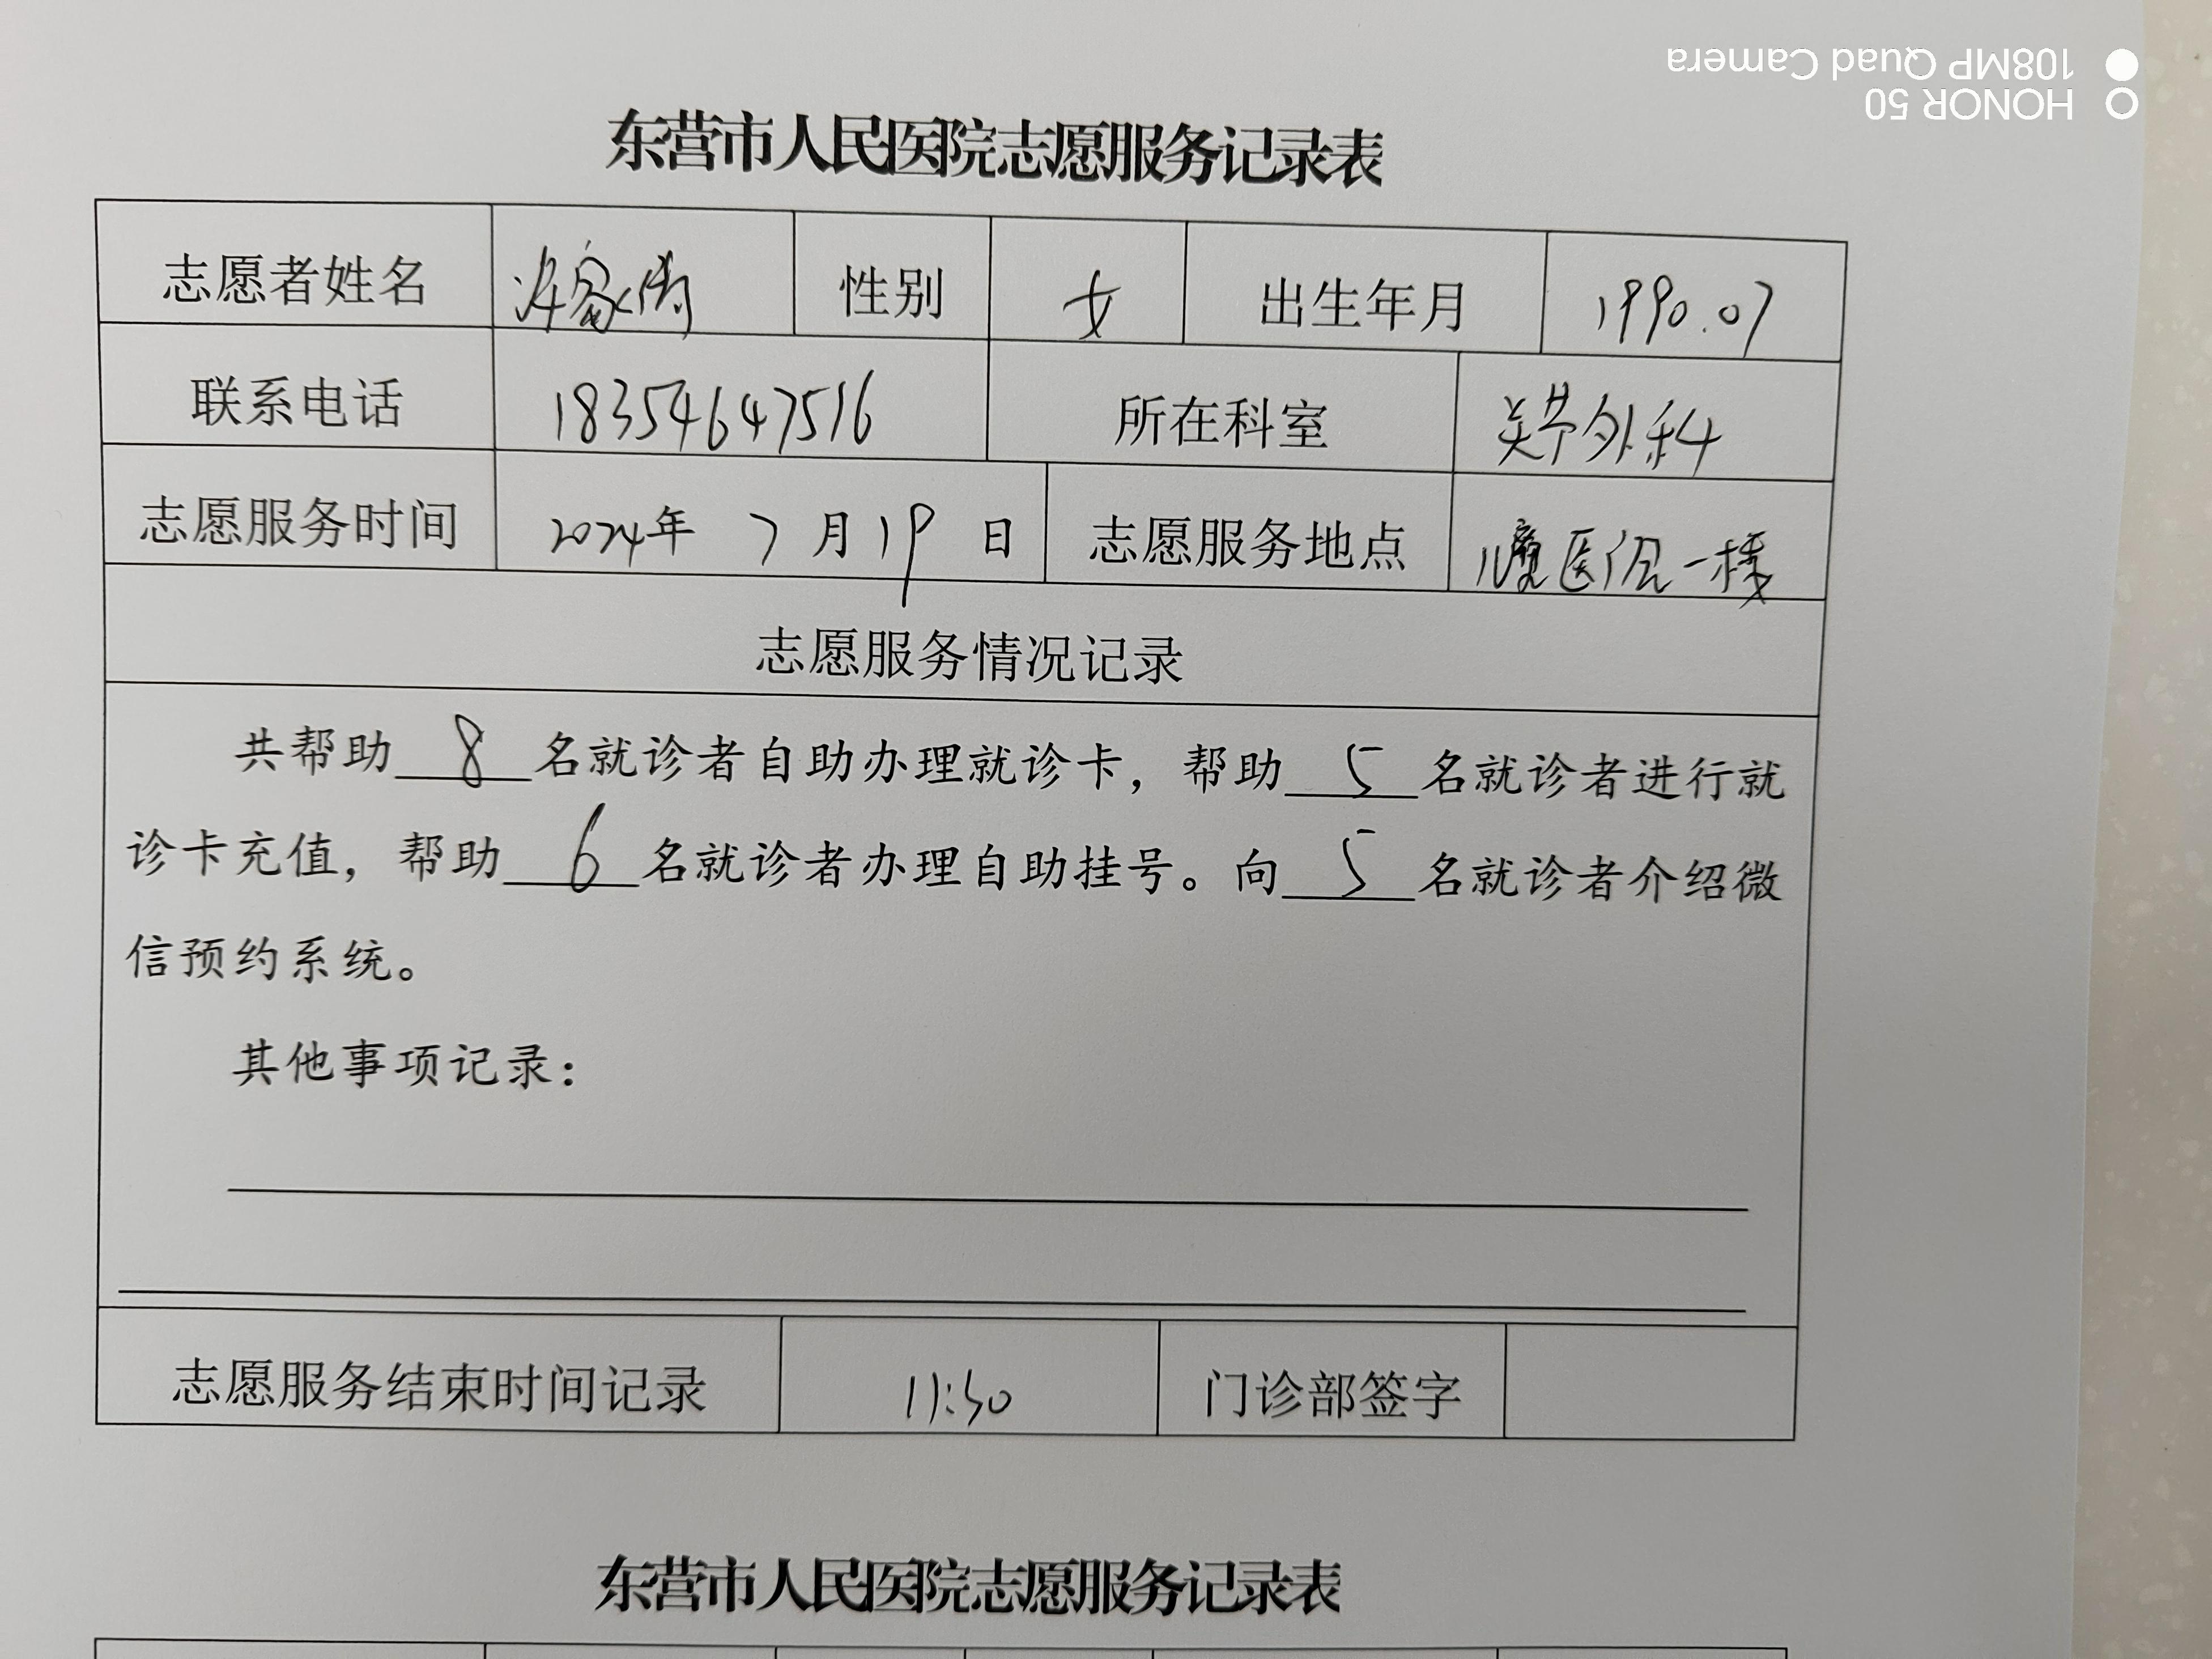 HONOR 50
108MP Quad Camera
东营市人民医院志愿服务记录表
志愿者姓名 性别 女 出生年月 1990.07
联系电话 18354647516 所在科室 关节外科
志愿服务时间 2024年 7 月 19 日 志愿服务地点 医 一楼
志愿服务情况记录
共帮助 8 名就诊者自助办理就诊卡，帮助 5 名就诊者进行就
诊卡充值，帮助 6 名就诊者办理自助挂号。向 5 名就诊者介绍微
信预约系统。
其他事项记录：
志愿服务结束时间记录 11:30 门诊部签字
东营市人民医院志愿服务记录表